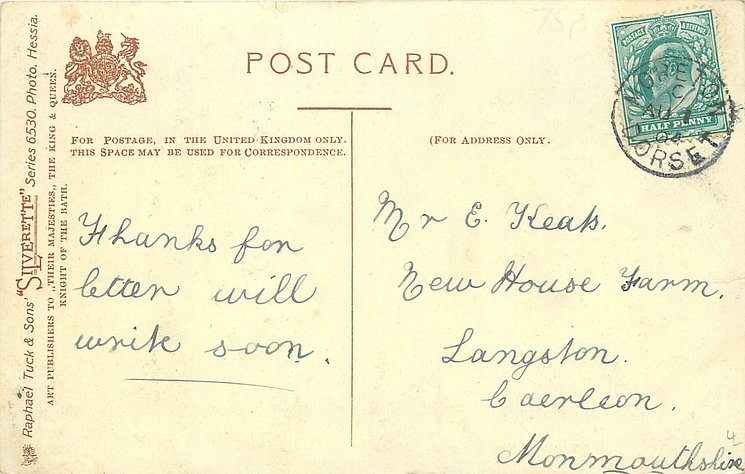 POST CARD.
FOR POSTAGE, IN THE UNITED KINGDOM ONLY.
THIS SPACE MAY BE USED FOR CORRESPONDENCE.
(FOR ADDRESS ONLY.
Thanks for
letter will
write soon.
Mr E. Keats.
New House Farm.
Langston.
Caerleon.
Monmouthshire
4
Raphael Tuck & Sons' "SILVERETTE" Series 6530. Photo. Hessia.
ART PUBLISHERS TO „THEIR MAJESTIES„ THE KING & QUEEN.
KNIGHT OF THE BATH.
POSTAGE & REVENUE
HALF PENNY
MORETON
C
AU
04
DORSET